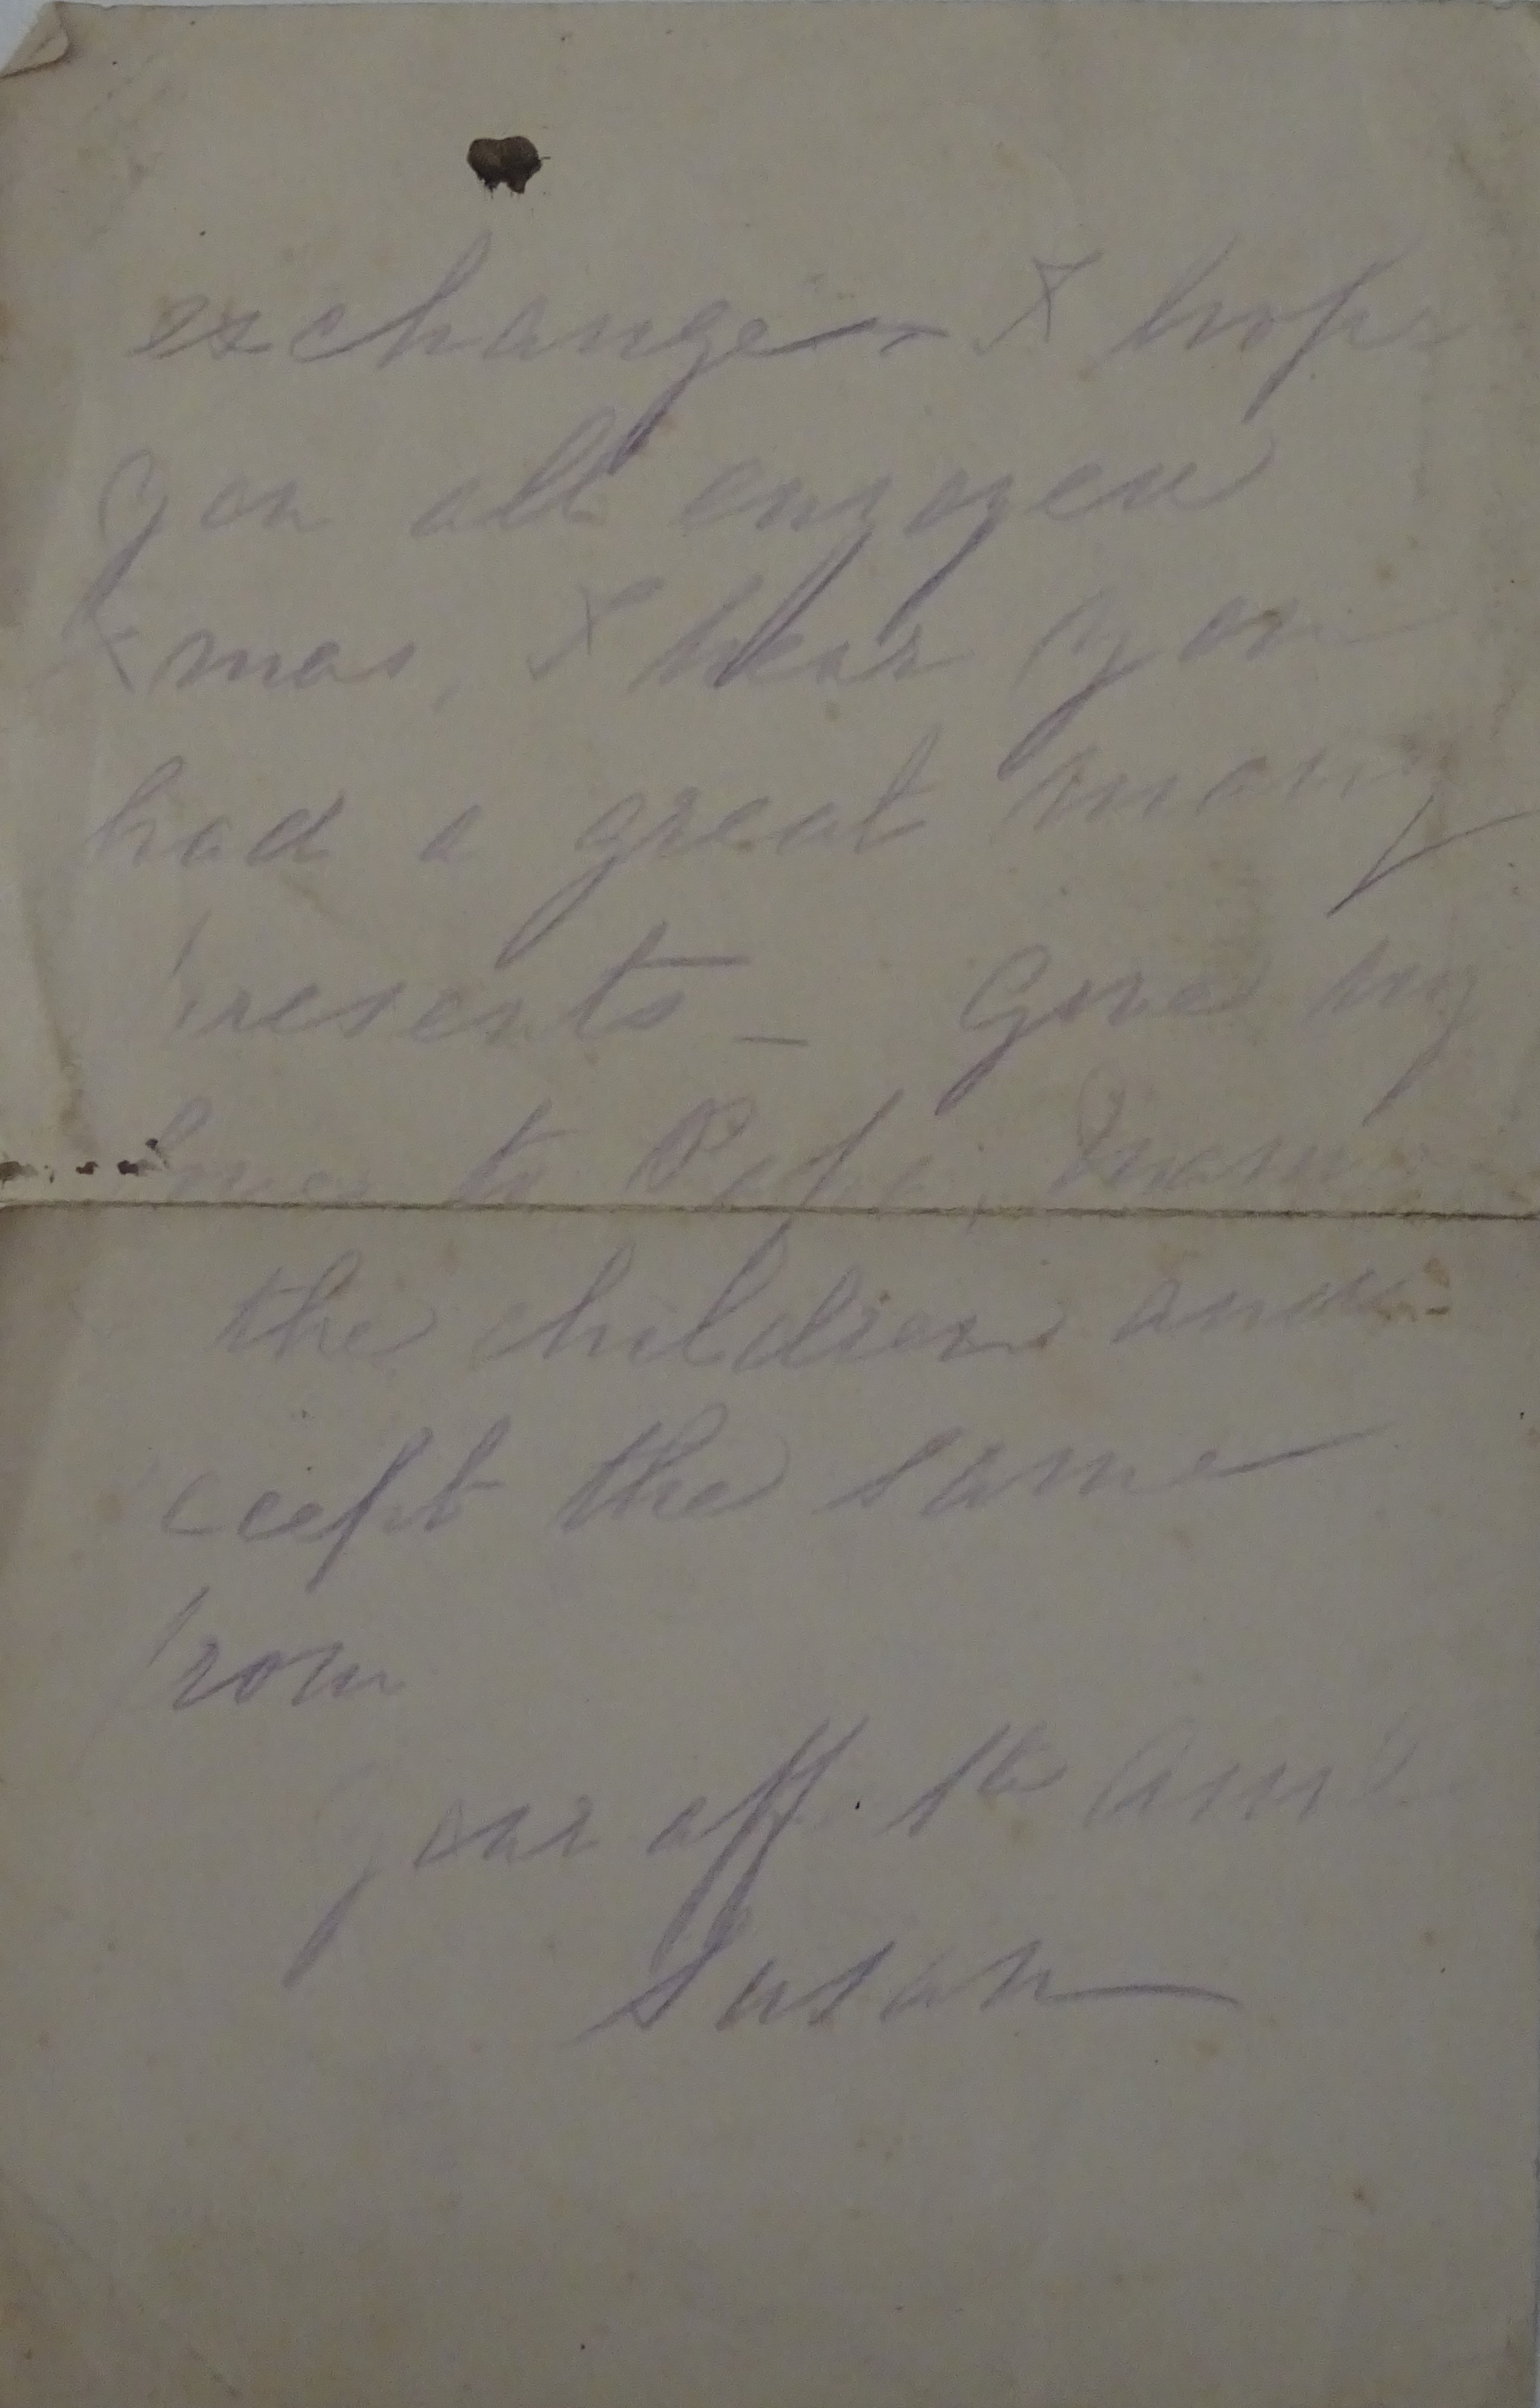 exchange - I hope
you all enjoyed
Xmas, I hear you
had a great many
presents - Give my
love to Papa, Mama
the children and
accept the same
from
your aff. te Aunt
Susan